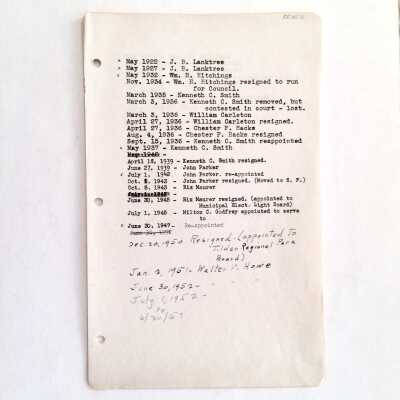 May 1922 - J. B. Lanktree
May 1927 - J. B. Lanktree
May 1932 - Wm. H. Hitchings
Nov. 1934 - Wm. H. Hitchings resigned to run
for Council.
March 1935 - Kenneth C. Smith
March 3, 1936 - Kenneth C. Smith removed, but
contested in court - lost.
March 3, 1936 - William Carleton
April 27, 1936 - William Carleton resigned.
April 27, 1936 - Chester F. Hacks
Aug. 4, 1936 - Chester F. Hacks resigned
Sept. 15, 1936 - Kenneth C. Smith reappointed
May 1937 - Kenneth C. Smith
May 1942
April 18, 1939 - Kenneth C. Smith resigned.
June 27, 1939 - John Parker
July 1, 1942 - John Parker. re-appointed
Oct. 5, 1943 - John Parker resigned. (Moved to S. F.)
Oct. 5, 1943 - Rix Maurer
June 30, 1945 - Rix Maurer resigned. (appointed to
Municipal Elect. Light Board)
July 1, 1945 - Milton C. Godfrey appointed to serve
to
June 30, 1947 - Re-appointed
Dec 20, 1950 Resigned - (appointed to
Tilden Regional Park
Board)
Jan. 2, 1951 - Walter P. Howe
June 30, 1952 -
July 1, 1952 -
to
6/30/57